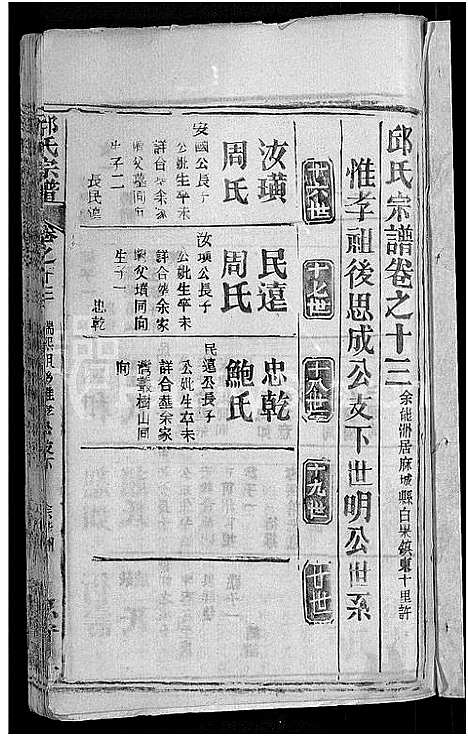 邱氏宗譜卷之十三
余能洲居麻城縣白果鎮東十里許
惟孝祖後思成公支下世明公世系
十六世
十七世
十八世
十九世
廿世
汝璜
周氏
安國公長子
公妣生卒未
詳合葬余家
生子二
長民遠
民遠
周氏
汝璜公長子
公妣生卒未
詳合葬余家
與父墳同向
生子一
忠乾
忠乾
鮑氏
民遠公長子
公妣生卒未
詳合葬余家
樹山同
向
邱氏宗譜
卷之十三